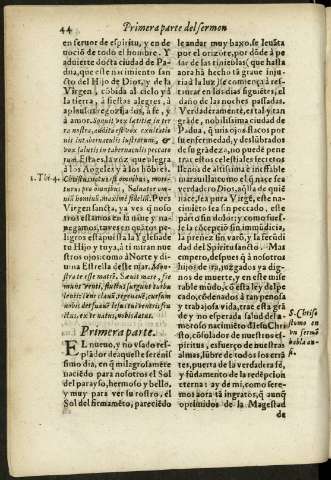 44
Primera parte del sermon
en feruor de espiritu, y en de
uoció de todo el hombre. Y
aduierte docta ciudad de Pa
dua, que este nacimiento san
cto del Hijo de Dios, y de la
Virgen, cóbida al cielo y á
la tierra, á fiestas alegres, á
aplausos regozijados, á fe, y
á amor. Sonuit vox lætitiæ in ter
ra nostra, audita est vox exultatio
nis in tabernaculis iustorum, &
vox salutis in tabernaculis peccato
rum. Esta es, la voz que alegra
á los Angeles y a los hóbres.
1. Tim. 4.
Christus natus est omnibus, mori
turus pro omnibus, Saluator om
niũ hominũ, maximè fideliũ. Pues
Virgen sancta, ya ves que no
sotros estamos en tu naue y na
uegamos, tu ves en quátos pe
ligros esta puesta la Yglesia de
tu Hijo y tuya, á ti miran nue
stros ojos: como á Norte y di
uina Estrella deste mar.
mini venti, fluctus surgunt turbu
tu es nobis
ctus, ex te natus, nobis datus.
Primera parte.
EL nueuo, y no vsado res-
plādor de aqueste serenis
simo dia, en q̃ milagrosamēte
naciēdo para nosotros el Sol
del parayso, hermoso y bello,
y muy para ver su rostro, el
Sol del firmamēto, pareciēdo
le andar muy baxo, se leuāta
por el orizonte, cō dár à pe
sar de las tinieblas (que hasta
aora hà hecho tā graue inju-
ria à la luz) se comença à res-
taurar en los dias siguiētes, el
daño de las noches passadas.
Verdaderamēte, es tal y tan
grāde, nobilissima ciudad de
Padua, q̃ vnis ojos flacos por
su enfermedad, y deslubrados
de su grādeza, no puedē pene
trar estos celestiales secretos
llenos de altissima è increible
marauilla: como el q̃ nace sea
verdadero Dios, aq̃lla de quiē
nace, sea pura Virgē, este na-
cimiēto sea sin peccado, este
parto sin dolor; y como fues-
se la cócepcion sin immūdicia,
la preñez sin varó, y la fecūdi
dad del Spiritu sancto. Mas
empero, despues q̃ à nosotros
hijos de ira, juzgados ya dig-
nos de muerte, y en este mise
rable mūdo, cō esta ley del pe
cado, códenados à tan penosa
y triste vida, mas cō esta grā
de y no esperada salud del a-
moroso nacimiēto d̃ Iesu Chri
sto, cósolador de nuestros es-
piritus, esfuerço de nuestras
almas, lūbre de todos los errā
tes, puerta de la verdadera fé,
y fūdamento de la redēpcion
eterna: ay de mi, como sere-
mos aora tā ingratos, q̃ aunq̃
oprimidos de la Magestad
S. Chriso
stomo en
vn sermō
habla an-
si.
de